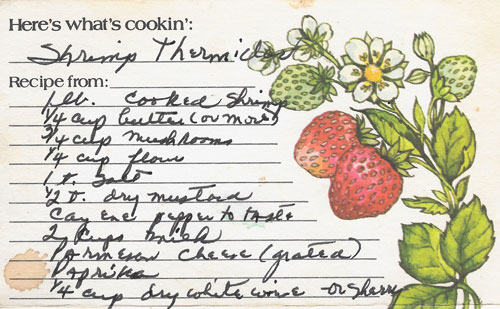 Here's what's cookin':
Shrimp Thermidor
Recipe from:
1 lb. cooked shrimp
1/4 cup butter (or more)
3/4 cup mushrooms
1/4 cup flour
1 t. salt
1/2 t. dry mustard
Cayene pepper to taste
2 cups milk
Parmesan cheese (grated)
Paprika
1/4 cup dry white wine - or sherry